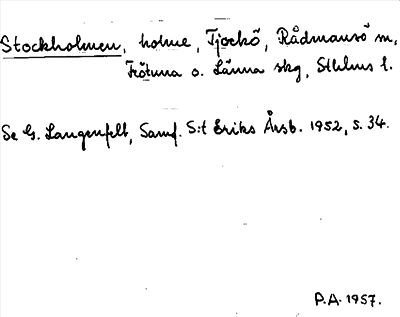 Stockholmen, holme, Tjockö, Rådmansö sn,
Frötuna o. Länna skg, Sthlms l.
Se G. Langenfelt, Samf. S:t Eriks Årsb. 1952, s. 34.
P.A. 1957.